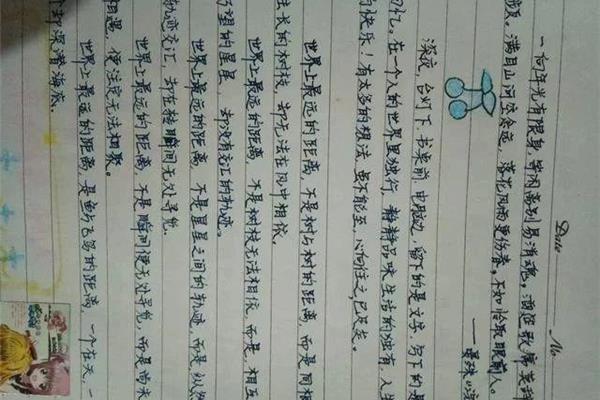 Date No
一向年光有限身,等闲离别易消魂。酒筵歌席莫辞
频。满目山河空念远,落花风雨更伤春。不如怜取眼前人。
——晏殊
深夜,台灯下,书桌前,电脑边,留下的是文字,写下的是
回忆。在一个人的世界里独行,静静品味生活的独有,人生
的快乐!有太多的想法,虽不能至,心向往之,已足矣。
世界上最远的距离,不是树与树的距离,而是同根
生长的树枝,却无法在风中相依。
世界上最远的距离,不是树枝无法相依,而是相互
了望的星星,却没有交汇的轨迹。
世界上最远的距离,不是星星之间的轨迹,而是纵然
轨迹交汇,却在转瞬间无处寻觅。
世界上最远的距离,不是瞬间便无处寻觅,而是尚未
相遇,便注定无法相聚。
世界上最远的距离,是鱼与飞鸟的距离,一个在天,一
个却深潜海底。